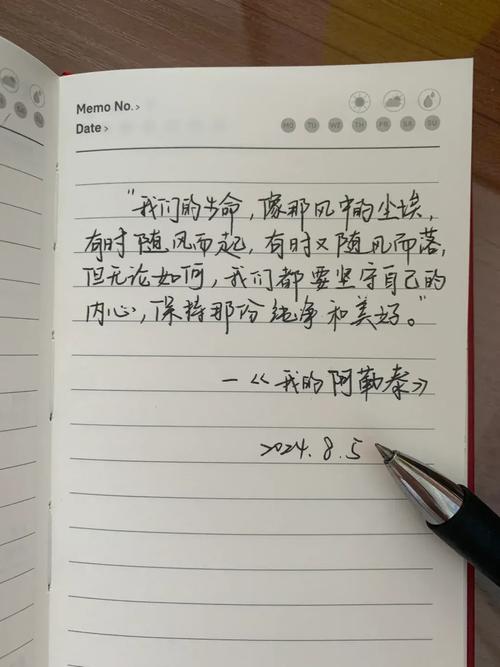 Memo No.>
Date>
MO TU WE TH FR SA SU
"我们的生命，像那风中的尘埃，
有时随风而起，有时又随风而落，
但无论如何，我们都要坚守自己的
内心，保持那份纯净和美好。"
—《我的阿勒泰》
2024.8.5